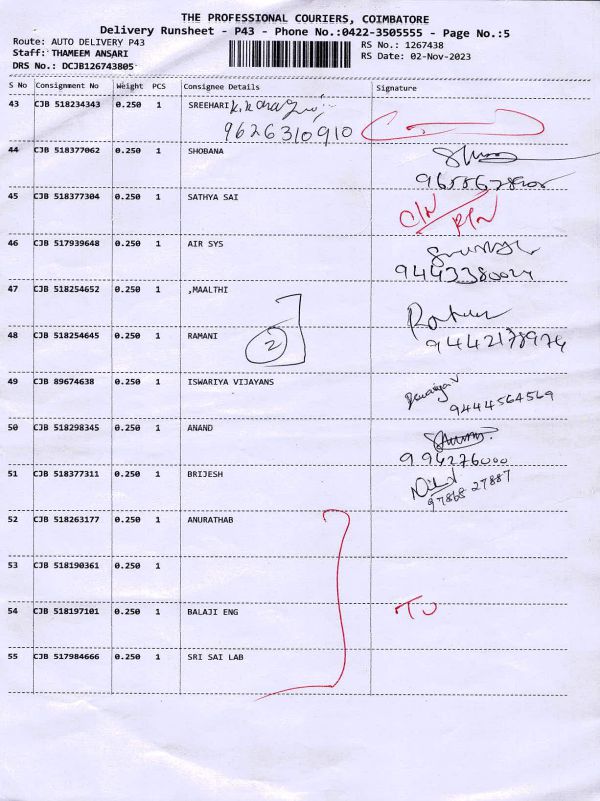 THE PROFESSIONAL COURIERS, COIMBATORE
Delivery Runsheet - P43 - Phone No.:0422-3505555 - Page No.:5
Route: AUTO DELIVERY P43
Staff: THAMEEM ANSARI
DRS No.: DCJB126743805
RS No.: 1267438
RS Date: 02-Nov-2023
S No Consignment No Weight PCS Consignee Details Signature
43 CJB 518234343 0.250 1 SREEHARI
9626310910
44 CJB 518377062 0.250 1 SHOBANA
45 CJB 518377304 0.250 1 SATHYA SAI
C/N
46 CJB 517939648 0.250 1 AIR SYS
47 CJB 518254652 0.250 1 ,MAALTHI
48 CJB 518254645 0.250 1 RAMANI 2
9442178974
49 CJB 89674638 0.250 1 ISWARIYA VIJAYANS
9444564569
50 CJB 518298345 0.250 1 ANAND
994276000
51 CJB 518377311 0.250 1 BRIJESH
97868 27887
52 CJB 518263177 0.250 1 ANURATHAB
53 CJB 518190361 0.250 1
54 CJB 518197101 0.250 1 BALAJI ENG
55 CJB 517984666 0.250 1 SRI SAI LAB